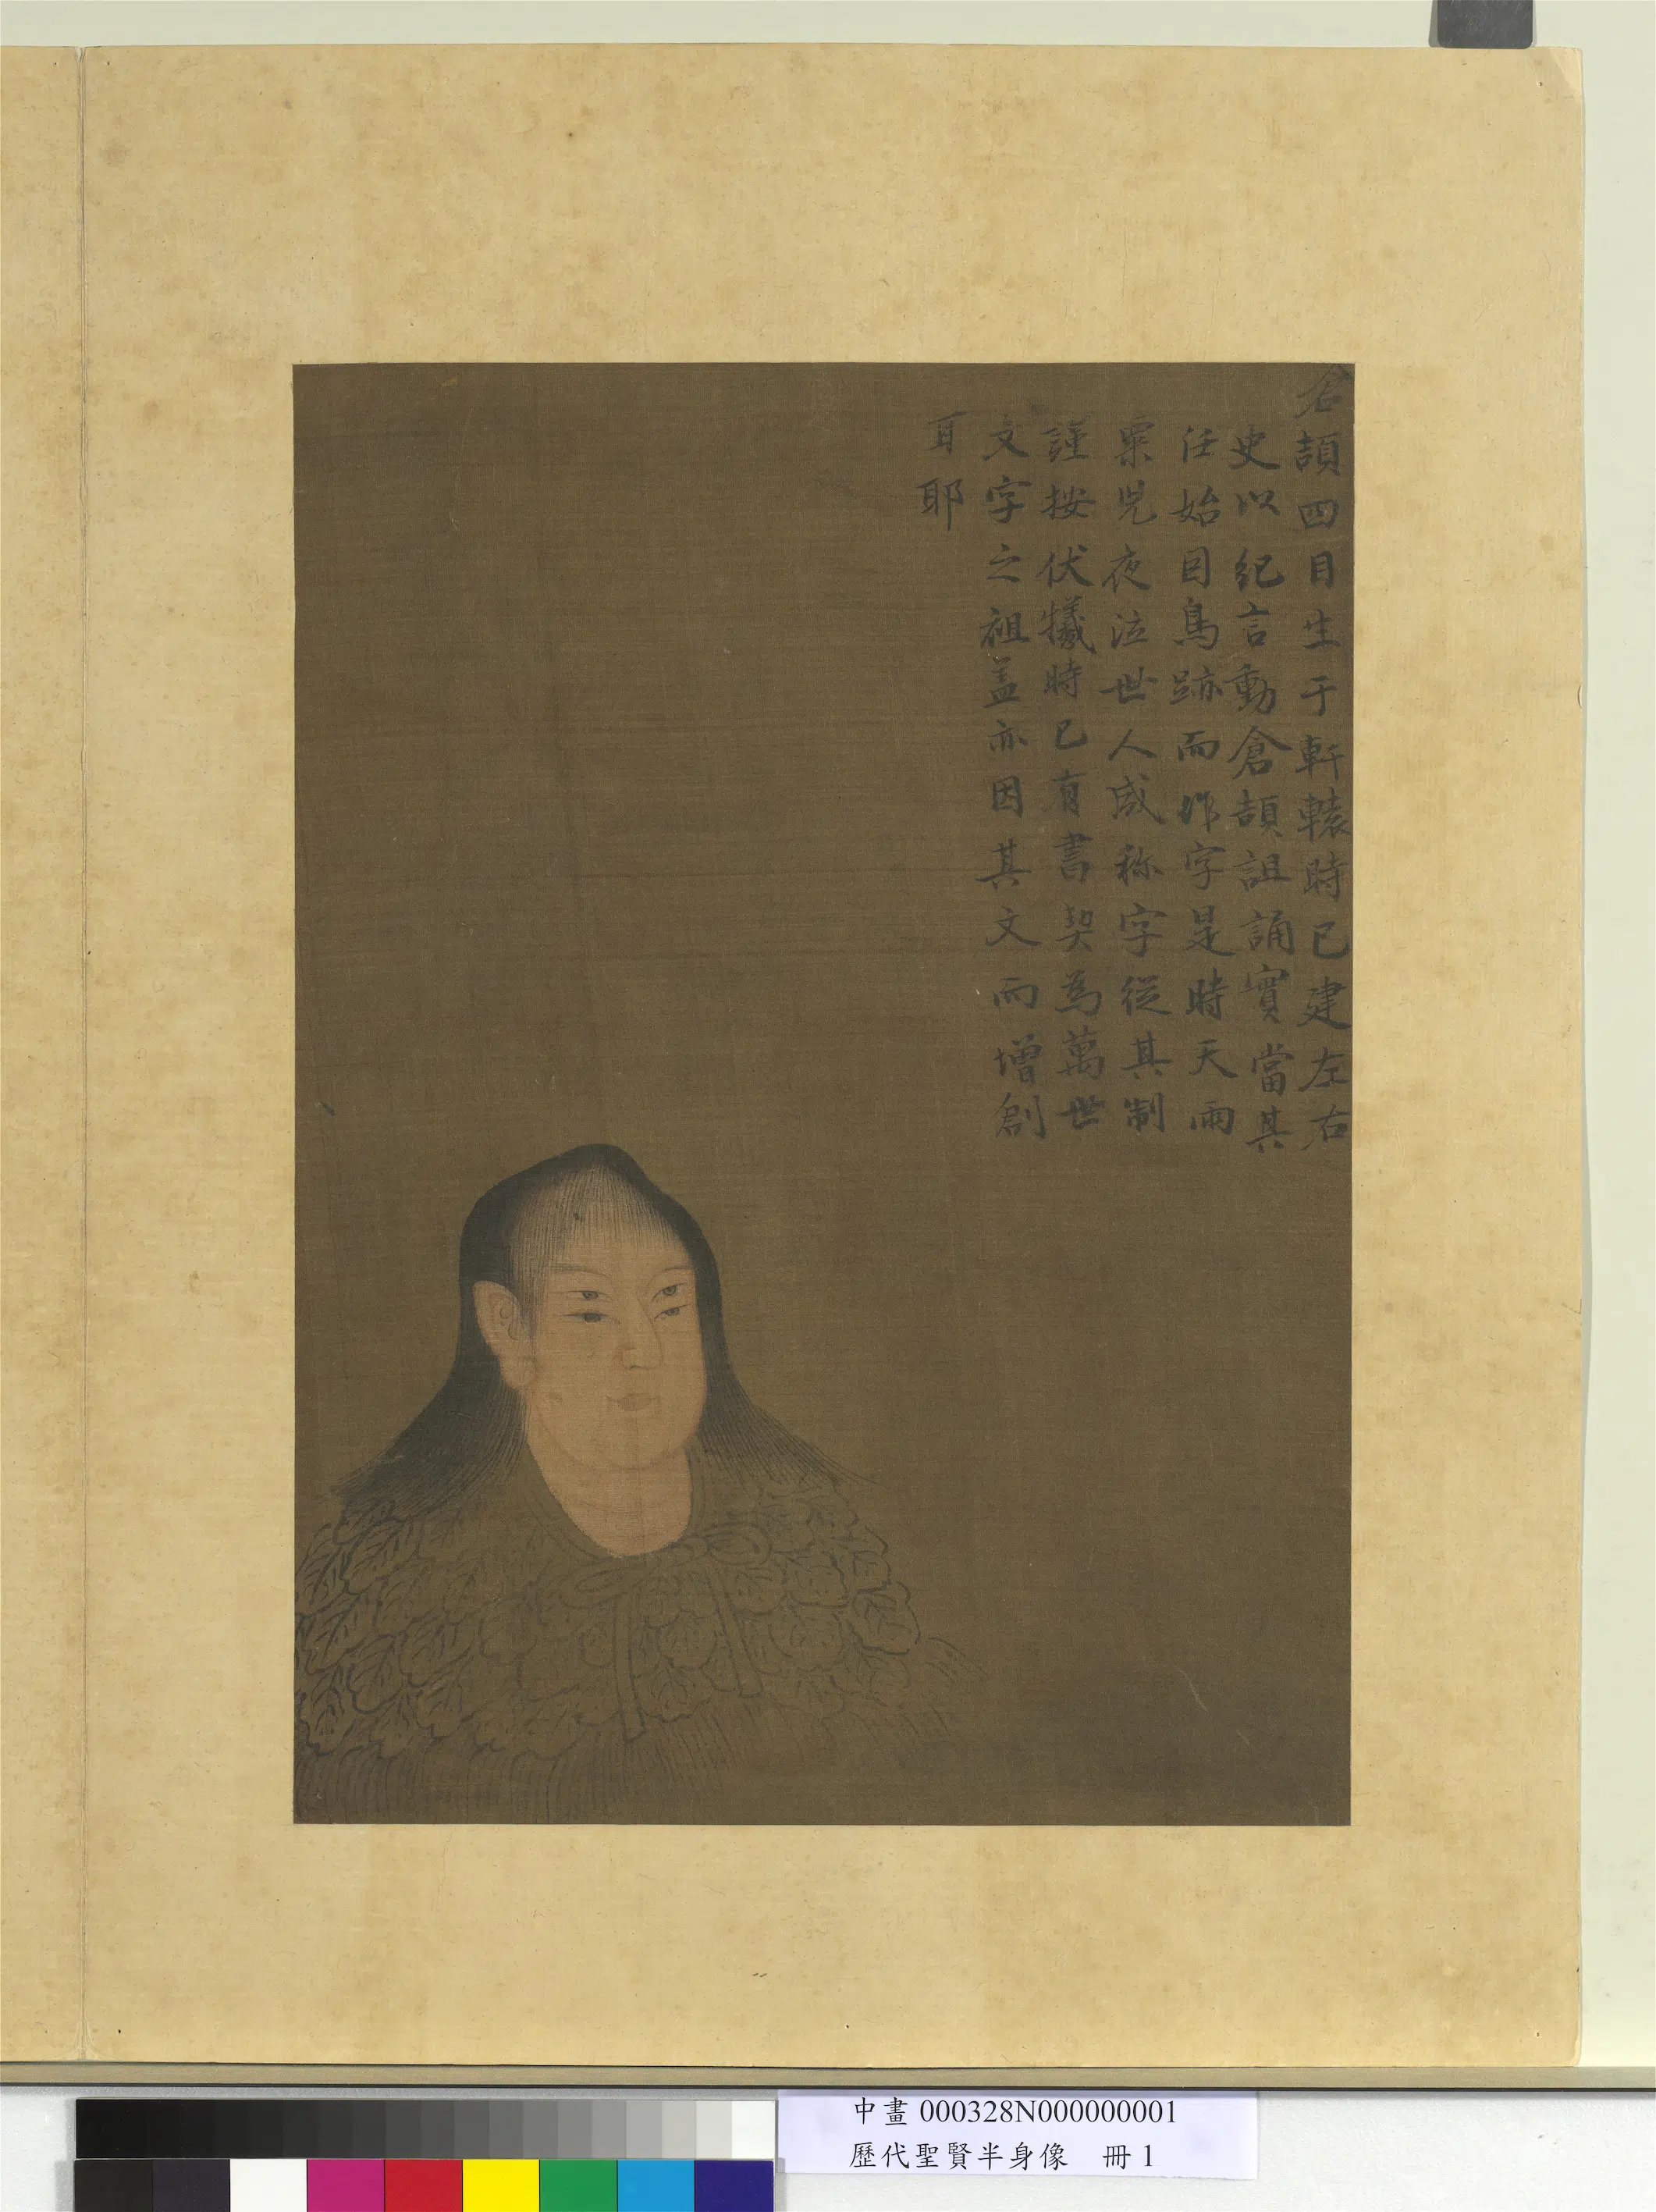 倉頡四目生于軒轅時已建左右
史以紀言動倉頡詛誦實當其
任始因鳥跡而作字是時天雨
粟鬼夜泣世人咸称字從其制
謹按伏犧時已有書契為萬世
文字之祖盖亦因其文而增創
耳耶
中畫 000328N000000001
歷代聖賢半身像 冊 1